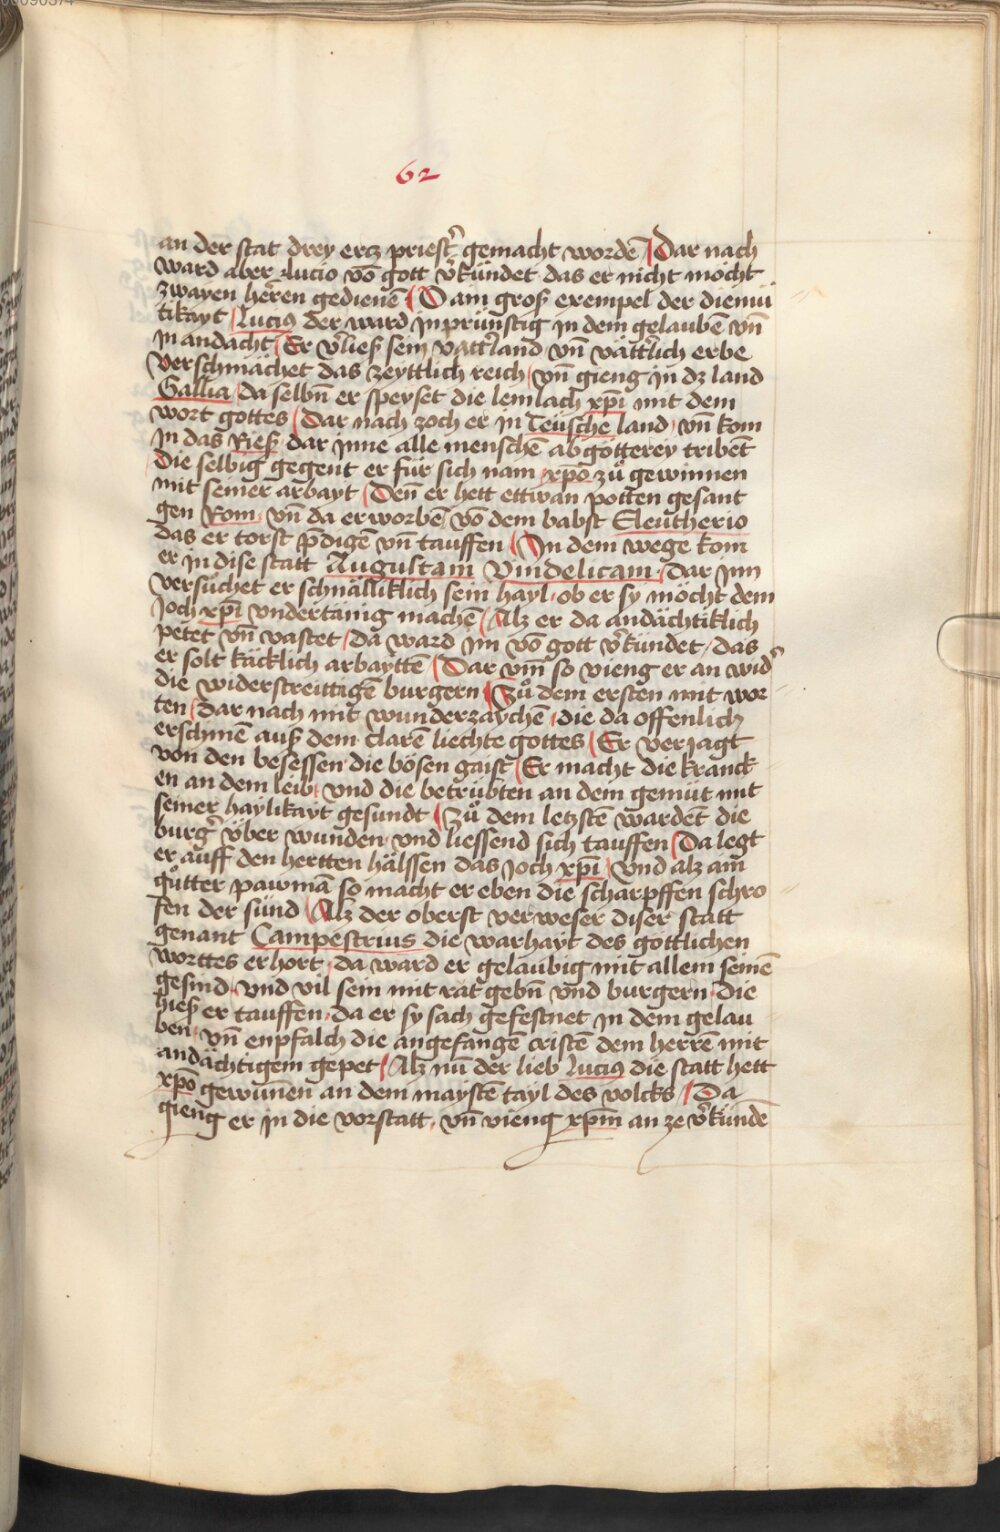 62
an der stat drey ercz priest̾ gemacht wordē Dar nach
ward aber Lucio vō gott v̾kündet das er nicht möcht
zwayen herren gedienē O ain groß exempel der diemü
tikayt Lucius der ward jnprünstig jn dem gelaubē vn̄
jn andacht Er v̾ließ sein vatt̾land vn̄ vätt̾lich erbe
Verschmächet das zeyttlich reich vn̄ gieng jn dz land
Gallia da selbn̄ er speyset die lemlach xp̄i mit dem
wort gottes Dar nach zoch er jn Teüsche land vn̄ kom
jn das Rieß dar jnne alle menschē abgötterey tribēt
die selbig gegent er für sich nam xp̄o zů gewinnen
mit seiner arbayt Den̄ er hett ettwan potten gesant
gen Rom vn̄ da erworbē vō dem babst Eleutherio
das er torst p̄digē vn̄ tauffen In dem wege kom
er jn dise statt Augustam Vindelicam Dar jnn
versůchet er schnälliklich sein hayl ob er sy möcht dem
joch xp̄i vndertänig machē Alz er da andächtiklich
petet vn̄ vastet da ward jm vō gott v̾kündet das
er solt käcklich arbayttē Dar vm̄ so vieng er an wid̾
die widerstreittigē burgern Zů dem ersten mit wor
ten dar nach mit wunderzaychē die da offenlich
erschinē auß dem clarē liechte gottes Er verjagt
von den besessen die bösen gaist Er macht die kranck
en an dem leib vnd die betrübten an dem gemüt mit
seiner haylikayt gesundt Zů dem letstē wardēt die
burg̾ über wunden vnd liessend sich tauffen Da legt
er auff den hertten hälssen das joch xp̄i Vnd alz ain
gůtter pawmā so macht er eben die scharpffen schro
fen der sünd Alz der oberst verweser diser statt
genant Campestrius die warhayt des göttlichen
worttes erhort da ward er gelaubig mit allem seinē
gesind vnd vil sein mit rat gebn̄ vnd burgern die
hieß er tauffen da er sy sach gefestnet jn dem gelau
ben vn̄ enpfalch die angefangē cristē dem herre mit
andächtigem gepet Alz nū der lieb Lucius die statt hett
xp̄o gewūnen an dem maystē tayl des volcks Da
gieng er jn die vorstatt vn̄ vieng xp̄m an ze v̾kündē